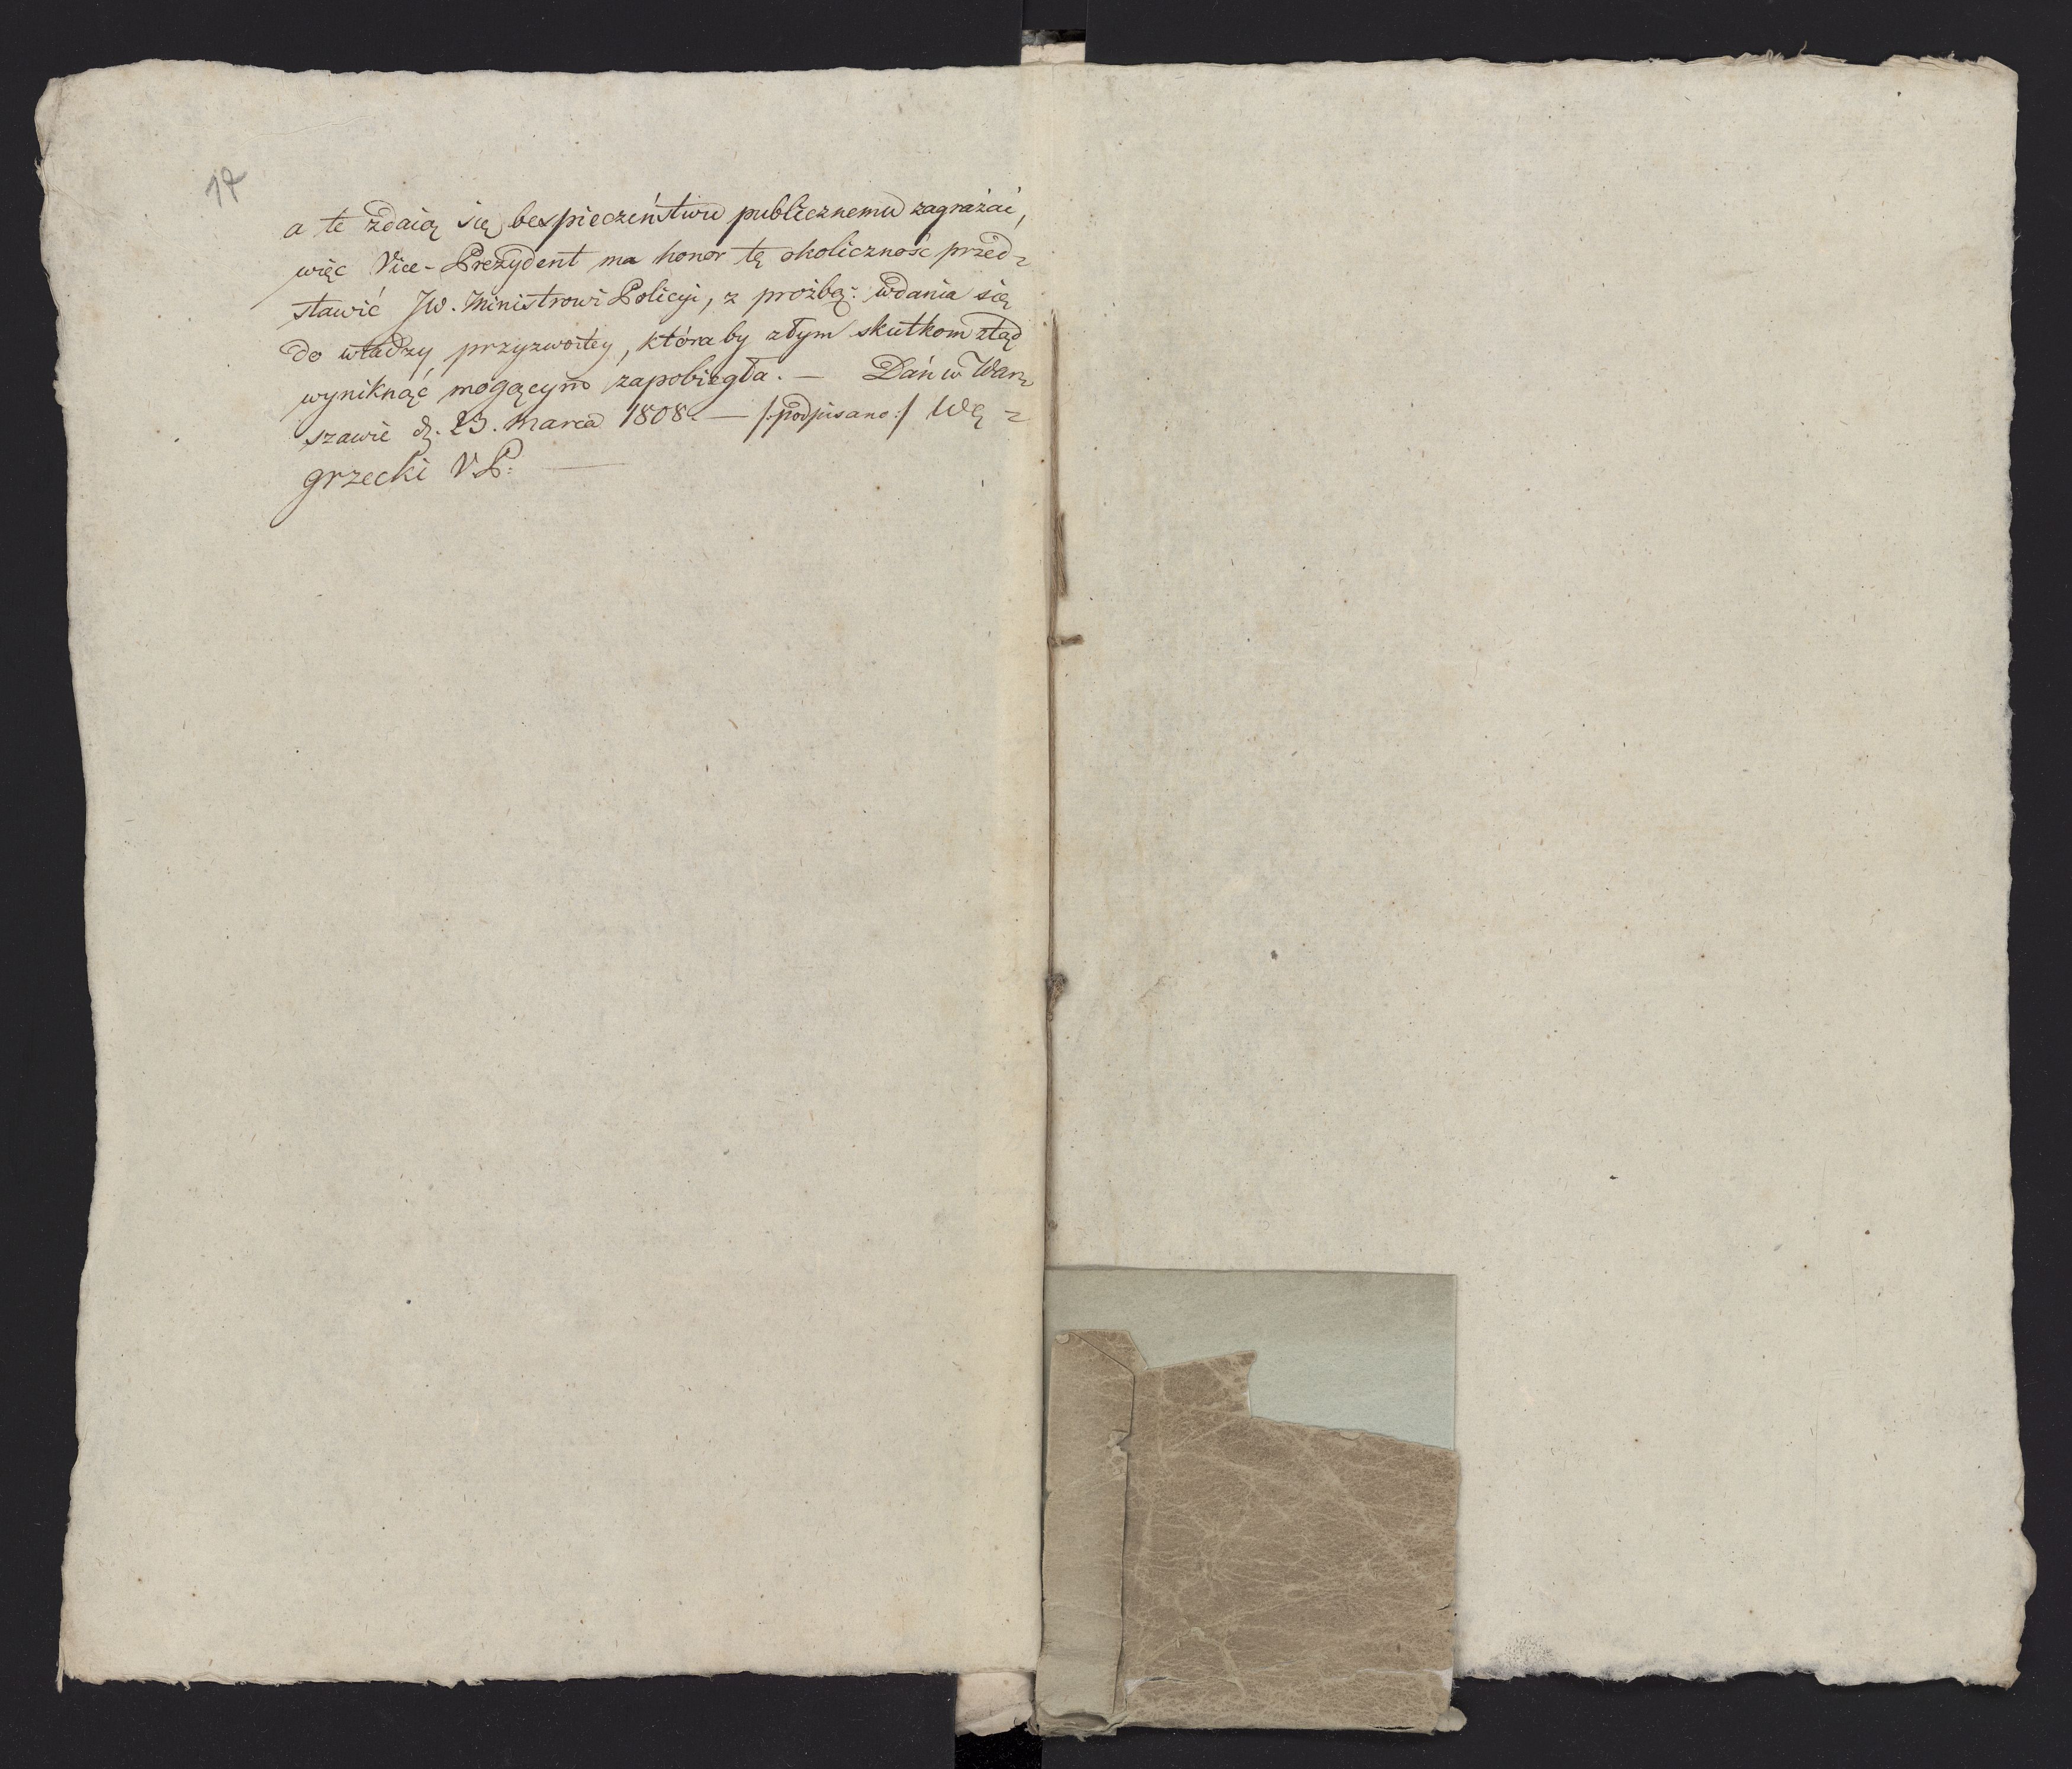 17
a te zdaią się bespieczeństwu publicznemu zagrażać,
więc Vice-Prezydent ma honor tę okoliczność przed-
stawić JW. Ministrowi Policyi, z prożbą: wdania się
do władzy przyzwoitey, któraby złym skutkom ztąd
wyniknąć mogącym zapobiegła. — Dań w War-
szawie d. 23. Marca 1808. — /:podpisano:/ Wę-
grzecki V.P: —